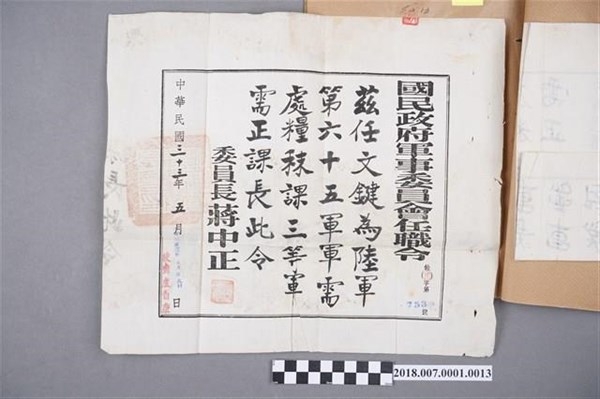 國民政府軍事委員會任職令
字第
755
號
茲任文鍵為陸軍
第六十五軍軍需
處糧秣課三等軍
需正課長此令
委員長蔣中正
中華民國三十三年五月
日
2018.007.0001.0013